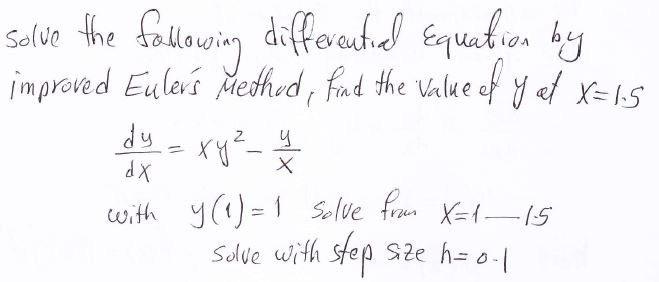 Solve the following differential Equation by
improved Euler's Method, find the value of y at x=1.5
dy/dx = xy² - y/x
with y(1)=1 solve from x=1—1.5
solve with step size h=0.1